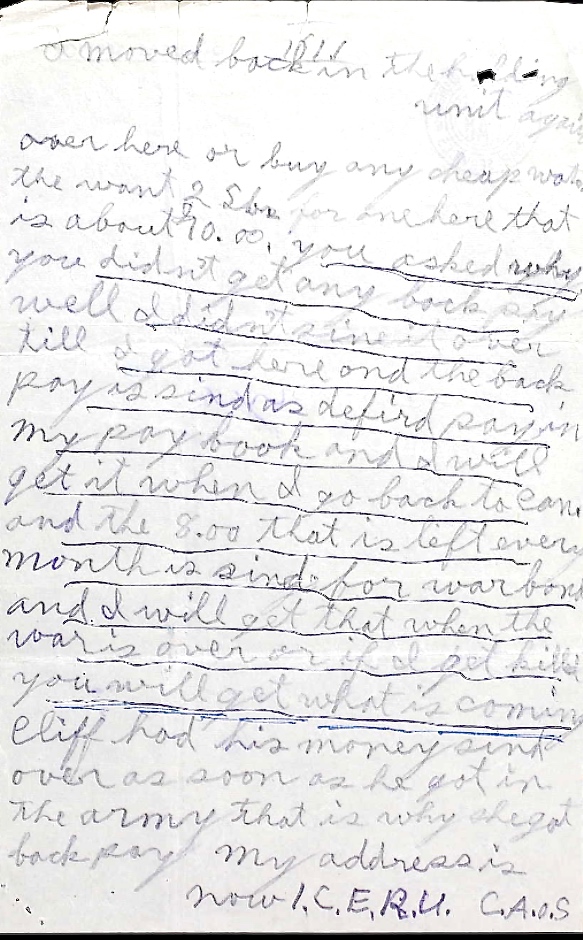 I moved back in the holding
unit again
over here or buy any cheap
the want for one here that
is about 90.00. you asked why
you didn't get any back pay
well I didn't sine it over
till I got here and the back
pay is sind as defird pay in
my pay book and I will
get it when I go back to can.
and the 8.00 that is left every
month is sind for war bond
and I will get that when the
war is over or if I get kill
you will get what is coming
Cliff had his money sind
over as soon as he got in
the army that is why she got
back pay my address is
now 1.C.E.R.U. C.A.O.S